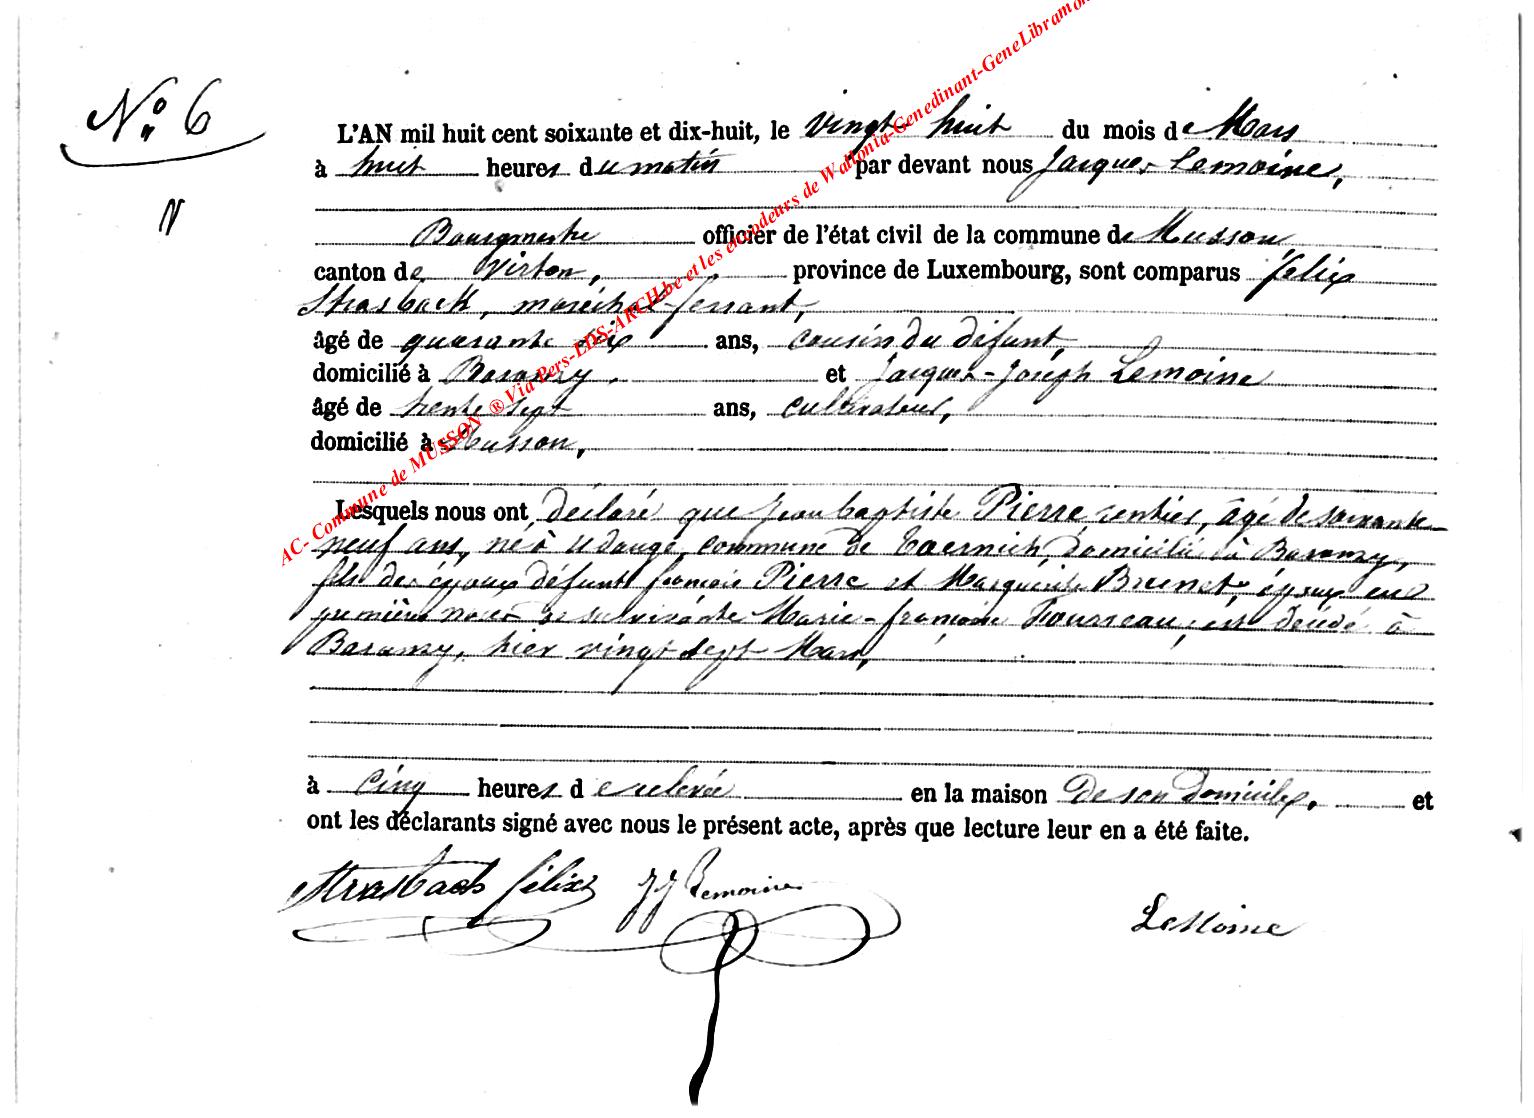 N° 6
N
L'AN mil huit cent soixante et dix-huit, le vingt huit du mois de Mars
à huit heures du matin par devant nous Jacques Lemoine,
Bourgmestre officier de l'état civil de la commune de Musson,
canton de Virton, province de Luxembourg, sont comparus Félix
Strasback, maréchal-ferrant,
âgé de quarante six ans, cousin du défunt,
domicilié à Baranzy, et Jacques-Joseph Lemoine
âgé de trente sept ans, cultivateur,
domicilié à Musson,
Lesquels nous ont déclaré que Jean baptiste Pierre, rentier, âgé de soixante-
neuf ans, né à Udange, commune de Toernich, domicilié à Baranzy,
fils des époux défunt françois Pierre et Marguerite Brunet, époux en
premières noces de survivante Marie-françoise Fourreau, est décédé à
Baranzy, hier vingt sept Mars,
à cinq heures de relevée en la maison de son domicile, et
ont les déclarants signé avec nous le présent acte, après que lecture leur en a été faite.
Strasbach félix JJ Lemoine
LeMoine
AC- Commune de MUSSON ® Via Pers-LDS-ARCH.be et les encodeurs de Wallonia-Genedinant-GeneLibramon